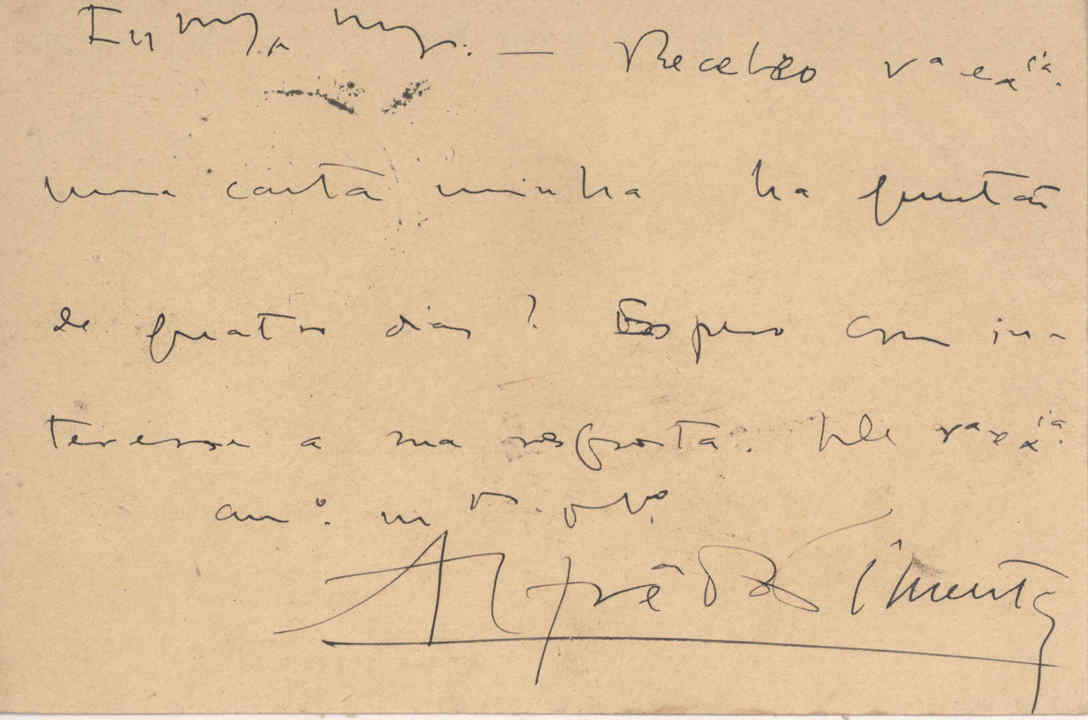 — Recebeo v.ª ex.ᶜⁱᵃ
uma carta minha ha questão
de quatro dias? Espero com in-
teresse a sua resposta. De v.ª ex.ᶜⁱᵃ
am.º m.ᵗᵒ ob.º
Alfrêdo Pimenta